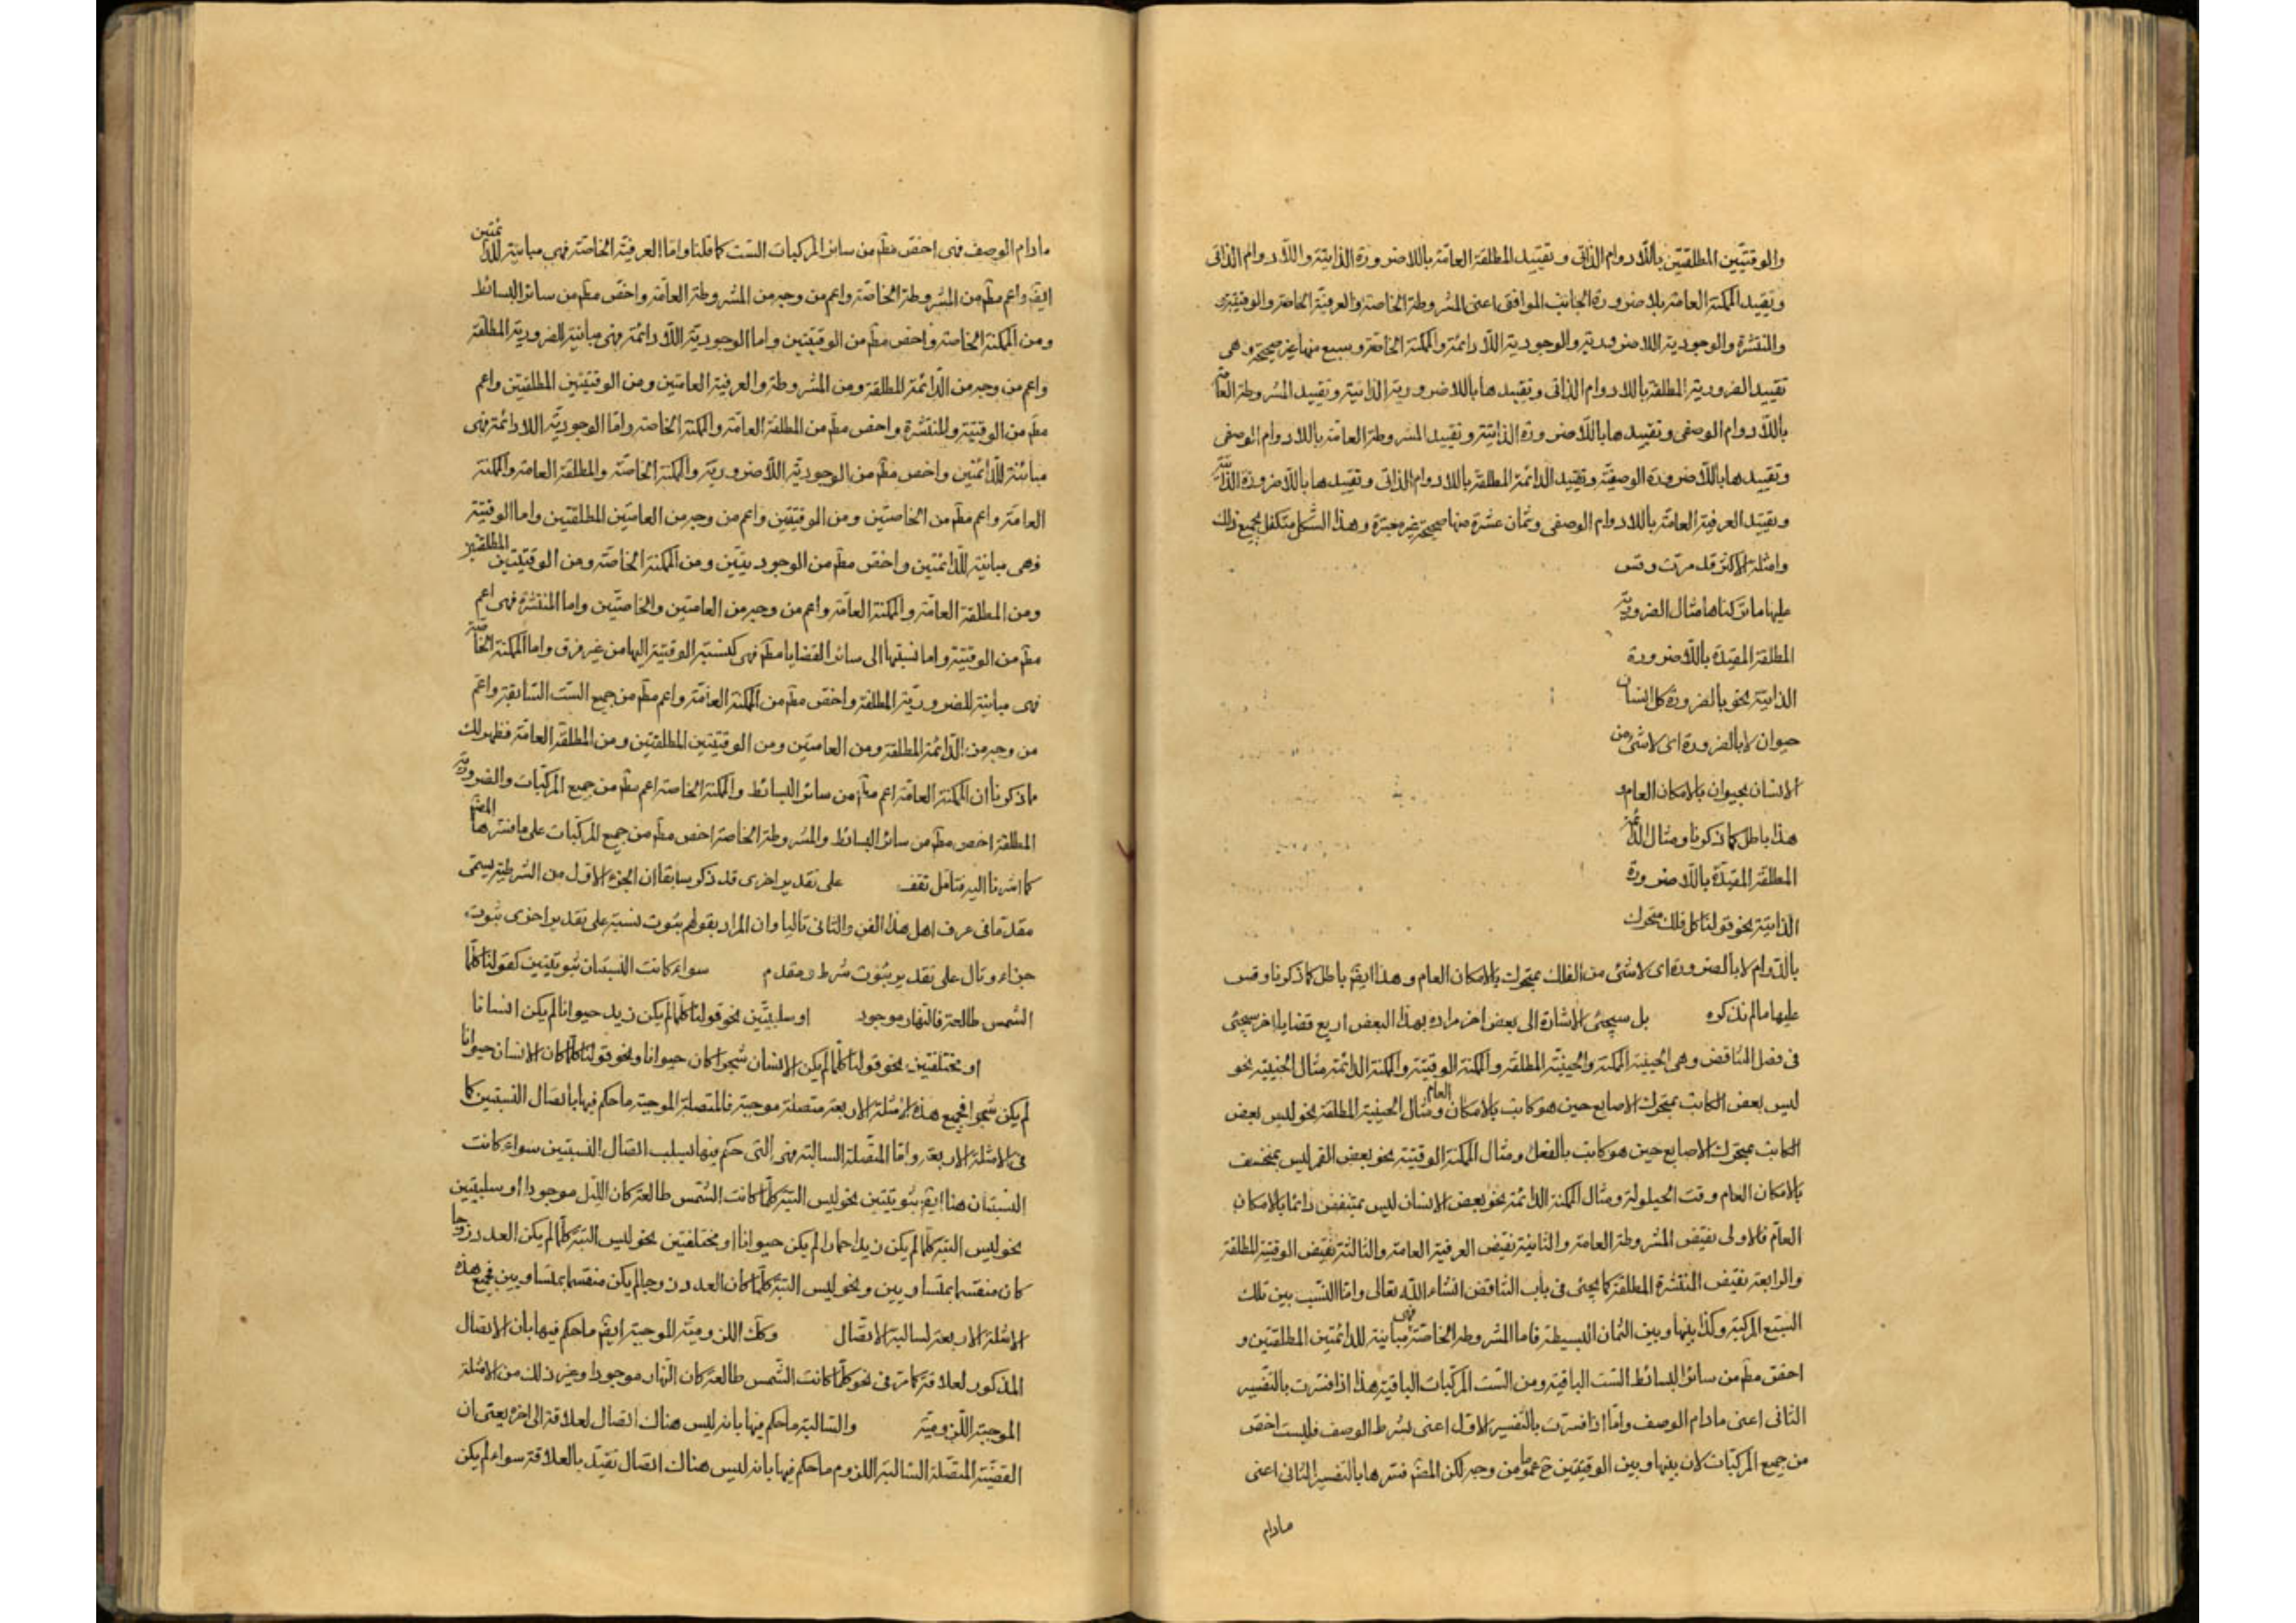 والوقتيتين المطلقتين باللادوام الذاتى وتقييد المطلقة العامة باللاضرورة الذاتية واللادوام الذاتى
وتقييد الممكنة العامة بلاضرورة الجانب الموافق اعنى المشروطة الخاصة والعرفية الخاصة والوقتية
والمنتشرة والوجودية اللاضرورية والوجودية اللادائمة والممكنة الخاصة وسبع منها غير صحيحة وهى
تقييد الضرورية المطلقة باللادوام الذاتى وتقييدها باللاضرورية الذاتية وتقييد المشروطة العامة
باللادوام الوصفى وتقييدها باللاضرورة الذاتية وتقييد المشروطة العامة باللادوام الوصفى
وتقييدها باللاضرورة الوصفية وتقييد الدائمة المطلقة باللادوام الذاتى وتقييدها باللاضرورة الذاتية
وتقييد العرفية العامة باللادوام الوصفى وثمان عشرة منها صحيحة غير معتبرة وهذا الشكل متكفل بجميع ذلك
وامثلة الاكثر قد مرت وقس
عليها ما تركناها مثال الضرورية
المطلقة المقيدة باللاضرورة
الذاتية نحو بالضرورة كل انسان
حيوان لا بالضرورة اى لا شئ من
الانسان بحيوان بالامكان العام و
هذا باطل كما ذكرنا ومثال الدائمة
المطلقة المقيدة باللاضرورة
الذاتية نحو قولنا كل فلك متحرك
بالدوام لا بالضرورة اى لا شئ من الفلك بمتحرك بالامكان العام وهذا ايضً باطل كما ذكرنا وقس
عليها ما لم نذكره بل سيجئ الاشارة الى بعض اخر مراده بهذا البعض اربع قضايا اخر سيجئ
فى فصل التناقض وهى الحينية الممكنة والحينية المطلقة والممكنة الوقتية والممكنة الدائمة مثال الحينية نحو
ليس بعض الكاتب بمتحرك الاصابع حين هو كاتب بالامكان العام ومثال الحينية المطلقة نحو ليس بعض
الكاتب بمتحرك الاصابع حين هو كاتب بالفعل ومثال الممكنة الوقتية نحو بعض القمر ليس بمنخسف
بالامكان العام وقت الحيلولة ومثال الممكنة الدائمة نحو بعض الانسان ليس بمتنفس دائما بالامكان
العام فالاولى نقيض المشروطة العامة والثانية نقيض العرفية العامة والثالثة نقيض الوقتية المطلقة
والرابعة نقيض المنتشرة المطلقة كما يجئ فى باب التناقض انشاء الله تعالى واما النسب بين تلك
السبع المركبة وكذا بينها وبين الثمان البسيطة فاما المشروطة الخاصة فهى مباينة للدائمتين المطلقتين و
اخص مطً من سائر البسائط الست الباقية ومن الست المركبات الباقية هذا اذا فسرت بالتفسير
الثانى اعنى مادام الوصف واما اذا فسرت بالتفسير الاول اعنى بشرط الوصف فليست اخص
من جميع المركبات لان بينها وبين الوقتيتين ح عموما من وجه لكن المصً فسرها بالتفسير الثانى اعنى
مادام
مادام الوصف فهى اخص مطً من سائر المركبات الست كما قلنا واما العرفية الخاصة فهى مباينة للدائمتين
ايضً واعم مطً من المشروطة الخاصة واعم من وجه من المشروطة العامة واخص مطً من سائر البسائط
ومن الممكنة الخاصة واخص مطً من الوقتيتين واما الوجودية اللادائمة فهى مباينة للضرورية المطلقة
واعم من وجه من الدائمة المطلقة ومن المشروطة والعرفية العامتين ومن الوقتيتين المطلقتين واعم
مطً من الوقتية والمنتشرة واخص مطً من المطلقة العامة والممكنة الخاصة واما الوجودية اللادائمة فهى
مباينة للدائمتين واخص مطً من الوجودية اللاضرورية والممكنة الخاصة والمطلقة العامة والممكنة
العامة واعم مطً من الخاصتين ومن الوقتيتين واعم من وجه من العامتين المطلقتين واما الوقتية
فهى مباينة للدائمتين واخص مطً من الوجوديتين ومن الممكنة الخاصة ومن الوقتيتين المطلقتين
ومن المطلقة العامة والممكنة العامة واعم من وجه من العامتين والخاصتين واما المنتشرة فهى اعم
مطً من الوقتية واما نسبتها الى سائر القضايا مطً فهى كنسبة الوقتية اليها من غير فرق واما الممكنة الخاصة
فهى مباينة للضرورية المطلقة واخص مطً من الممكنة العامة واعم مطً من جميع الست السابقة واعم
من وجه من الدائمة المطلقة ومن العامتين ومن الوقتيتين المطلقتين ومن المطلقة العامة فظهر لك
ماذكرنا ان الممكنة العامة اعم مطً من سائر البسائط والممكنة الخاصة اعم مطً من جميع المركبات والضرورية
المطلقة اخص مطً من سائر البسائط والمشروطة الخاصة اخص مطً من جميع المركبات على ما فسرها المصً
كما اشرنا اليه فتامل تقف على تقدير اخرى قد ذكر سابقا ان الجزء الاول من الشرطية يسمى
مقدما فى عرف اهل هذا الفن والثانى تاليا وان المراد بقولهم بثبوت نسبة على تقدير اخرى ثبوت
جزاء وتال على تقدير ثبوت شرط ومقدم سواء كانت النسبتان ثبوتيتين كقولنا كلما
الشمس طالعة فالنهار موجود او سلبيتين نحو قولنا كلما لم يكن زيد حيوانا لم يكن انسانا
او مختلفتين نحو قولنا كلما لم يكن الانسان شجرا كان حيوانا ونحو قولنا كلما كان الانسان حيوانا
لم يكن شجرا فجميع هذه الامثلة الاربعة متصلة موجبة فالمتصلة الموجبة ما حكم فيها باتصال النسبتين كما
فى الامثلة الاربعة واما المتصلة السالبة فهى التى حكم فيها بسلب اتصال النسبتين سواء كانت
النسبتان هنا ايضً ثبوتيتين نحو ليس البتة كلما كانت الشمس طالعة كان الليل موجودا او سلبيتين
نحو ليس البتة كلما لم يكن زيد احمارا لم يكن حيوانا او مختلفتين نحو ليس البتة كلما لم يكن العدد زوجا
كان منقسما بمتساويين ونحو ليس البتة كلما كان العدد زوجا لم يكن منقسما بمتساويين فجميع هذه
الامثلة الاربعة لسالبة الاتصال وكك اللزومية الموجبة ايضً ما حكم فيها بان الاتصال
المذكور لعلاقة كما مر فى نحو كلما كانت الشمس طالعة كان النهار موجودا وغير ذلك من الامثلة
الموجبة اللزومية والسالبة ما حكم فيها بانه ليس هناك اتصال لعلاقة الى اخره يعنى ان
القضية المتصلة السالبة اللزوم ما حكم فيها بانه ليس هناك اتصال تقيد بالعلاقة سواء لم يكن